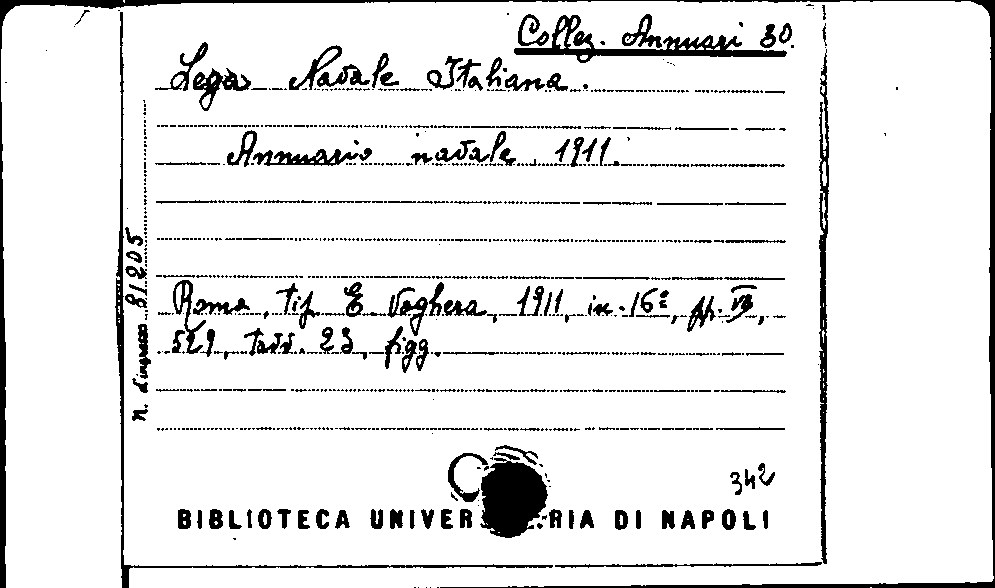 Collez. Annuari 30.
Lega Navale Italiana.
Annuario navale, 1911.
N. d'ingresso 81205
Roma, tip. E. Voghera, 1911, in-16º, pp. VII,
529, tavv. 23, figg.
342
BIBLIOTECA UNIVER RIA DI NAPOLI